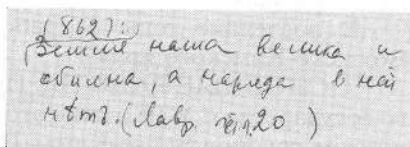 (862):
Земля наша велика и
обилна, а наряда в ней
нѣтъ. (Лавр. 20)